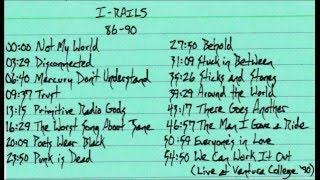 I-RAILS
86-90
00:00 Not My World
03:29 Disconnected
06:40 Mercury Don't Understand
09:37 Tryst
13:15 Primitive Radio Gods
16:29 The Worst Song About Jane
20:09 Poets Wear Black
23:50 Punk is Dead
27:50 Behold
31:09 Stuck in Between
35:26 Sticks and Stones
39:29 Around the World
43:17 There Goes Another
46:57 The Man I Gave a Ride
50:59 Everyone's in Love
54:50 We Can Work It Out
(Live at Ventura College '90)